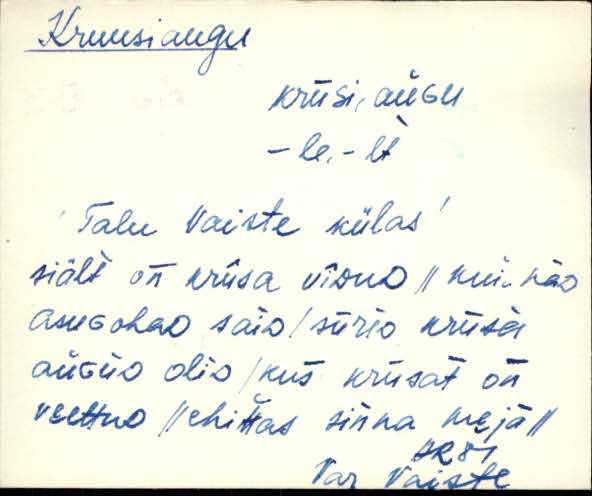 Kruusiaugu
krūsi, aūGU
-le, -lt
'Talu Vaiste külas'
siält on krūsa vīdud // kui nāo
asuGohad said / sūrid krūsa
aūGud olid / kus krūsat on
/ ehittas sinna mejā //
AR 81
Var Vaiste